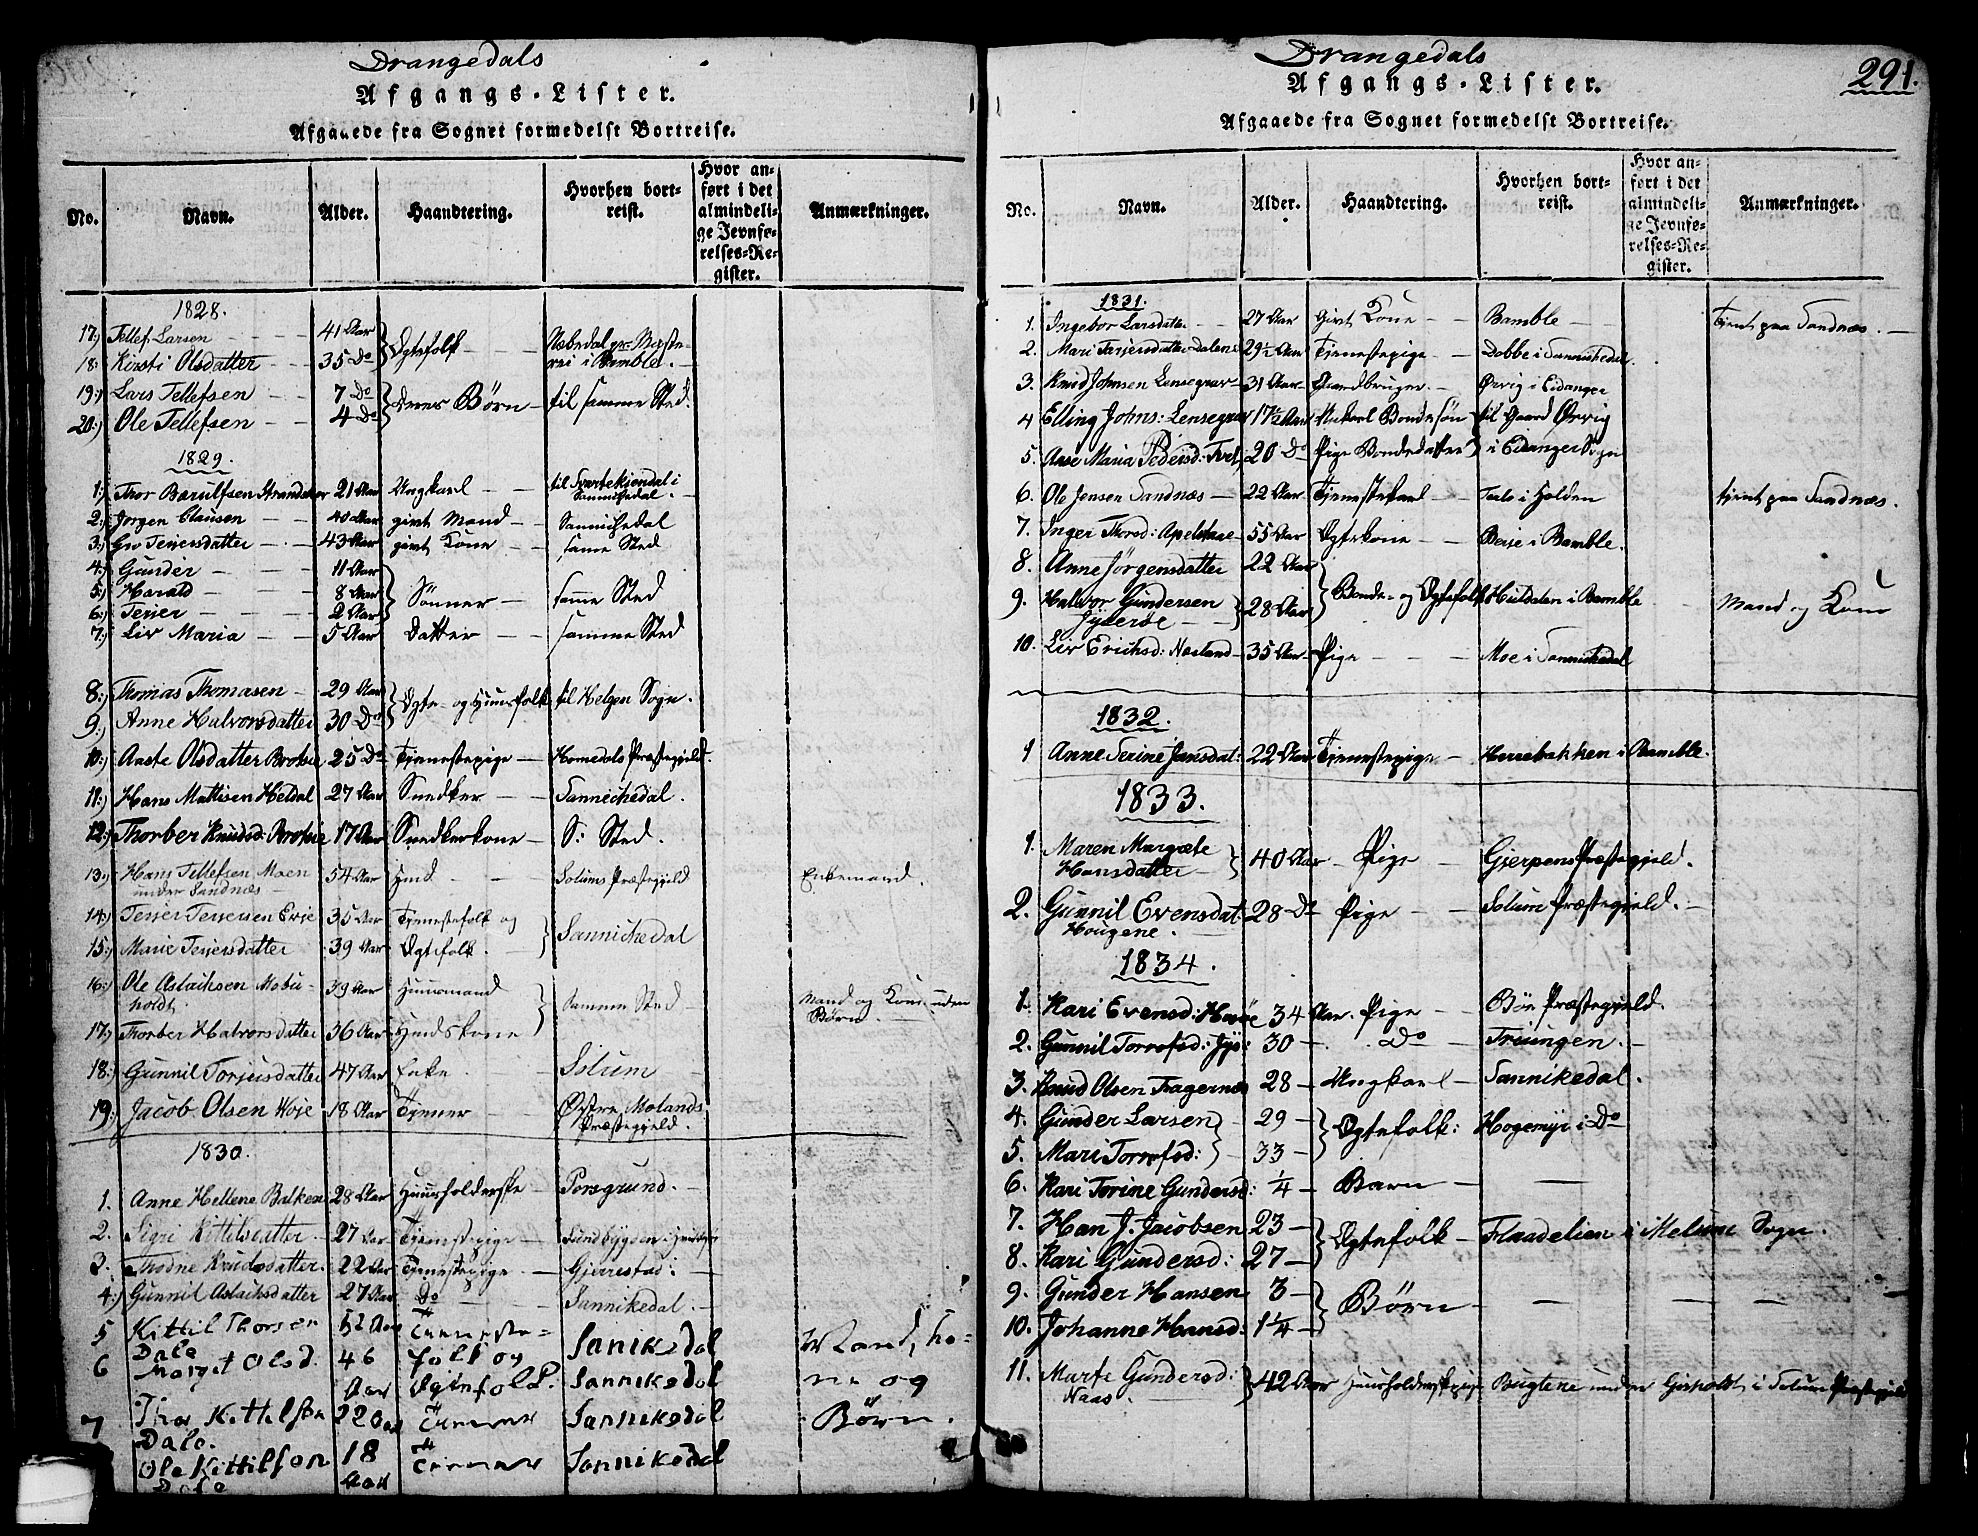 Drangedals
Afgangs-Lister.
Afgaaede fra Sognet formedelst Bortreise.
No. Navn. Alder. Haandtering. Hvorhen bortreist. Hvor anført i det almindelige Jevnførelses-Register. Anmærkninger.
1828.
17.) Tellef Larsen 41 Aar Ægtefolk
18. Kirsti Olsdatter 35 Do i Bamble.
19.) Lars Tellefsen 7 Do Deres Børn til samme Sted.
20.) Ole Tellefsen 4 Do
1829.
1.) Thor Barulfsen 21 Aar Ungkarl til Sannikedal.
2.) Jørgen Clausen 40 Aar givt Mand Sannichedal
3.) Gro Terjersdatter 43 Aar givt Kone same Sted
4.) Gunder 11 Aar
5.) Harald 8 Aar Sønner samme Sted
6.) Terjer 2 Aar
7.) Liv Maria 5 Aar Datter samme Sted
8.) Thomas Thomasen 29 Aar Ægte- og Huusfolk til Helgen Sogn.
9.) Anne Halvorsdatter 30 Do
10.) Aaste Olsdatter 25 Do Tjenestepige Homedals Præstegjeld.
11.) Hans Mattisen Heldal 27 Aar Snedker Sannichedal.
12.) Thorber Knudsd: 17 Aar Snedkerkone S: Sted.
13.) Hans Tellefsen Moen under Sandnæs 54 Aar Solums Præstegjeld Enkemand.
14.) Terjer Terjersen Evje 35 Aar Tjenestefolk og Sannichedal
15.) Marie Terjersdatter 39 Aar Ægtefolk.
16.) Ole Aslachsen 39 Aar Huusmand samme Sted Mand og Kone uden Børn.
17.) Thorber Halvorsdatter 36 Aar
18.) Gunnil Torjusdatter 47 Aar Enke. Solum
19.) Jacob Olsen Hoje 18 Aar Tjener Østre Molands Præstegjeld.
1830.
1. Anne Hellene Balken 28 Aar Huusholderske Porsgrund.
2. Sigri Kittilsdatter. 27 Aar Tjenestepige
3. Thodne Knudsdatter. 22 Aar Tjenestepige Gjerrestad:
4.) Gunnil Aslachsdatter 27 Aar Do Sannikedal.
5 Kittil Thorsen Dale 52 Aar Tieneste- Sanikedal Mand, ko-
6 Marget Olsd. 46 Aar folk og Ægtefolk. Sannikedal ne og
7 Thor Kittelsen Dale. 22 Aar Tiener Sannikedal Børn.
Ole Kittilsen Dale 18 Aar Tiener Sannikedal
Drangedals
291.
Afgangs-Lister.
Afgaaede fra Sognet formedelst Bortreise.
No. Navn. Alder. Haandtering. Hvorhen bortreist. Hvor anført i det almindelige Jevnførelses-Register. Anmærkninger.
1831.
1. Ingebor Larsdatter 27 Aar Givt Kone Bamble Tjent paa Sandnæs.
2. Mari Terjersdatter Dalene 29½ Aar Tjenestepige Dobbe i Sannikedal.
3. Knud Johnsen 31 Aar Gaardbruger. Ørvig i Eidanger
4 Elling Johns: 17½ Aar Bondesøn til Gaard Ørvig
5. Aase Maria Pedersd: 20 Do Pige Bondedatter i Eidanger Sogn
6. Ole Jensen Sandnæs 22 Aar Tjenestekarl i Holden tjent paa Sandnæs.
7. Inger Thorsd: 55 Aar Ægtekone i Bamble.
8. Anne Jørgensdatter 22 Aar Bonde- og Ægtefolk Huldalen i Bamble Mand og Kone
9. Halvor Gundersen 28 Aar
10. Liv Erichsd: Næsland 35 Aar Pige Moe i Sannikedal
1832.
1 Anne Serine Jansdat: 22 Aar Tjenestepige Herrebakken i Bamble.
1833.
1. Maren Margrete Hansdatter 40 Aar Pige Gjerpens Præstegjeld.
2. Gunnil Evensdat: Hougene. 28 Do Pige Solum Præstegjeld.
1834.
1. Kari Evensd: 34 Aar. Pige Bøe Præstegjeld.
2. Gunnil Torrefsd: 30 Do
3. Knud Olsen 28 Ungkarl Sannikedal.
4. Gunder Larsen 29 Ægtefolk: Hogemyr i Do
5. Mari Torrefsd: 33
6. Kari Torine Gundersd: ¼ Barn
7. Han J. Jacobsen 23 Ægtefolk i Melum Sogn.
8. Kari Gundersd: 27
9. Gunder Hansen 3 Børn
10. Johanne Hansd: 1¼
11. Marte Gundersd: Naas. 42 Aar Bugtene under i Solum Præstegjeld